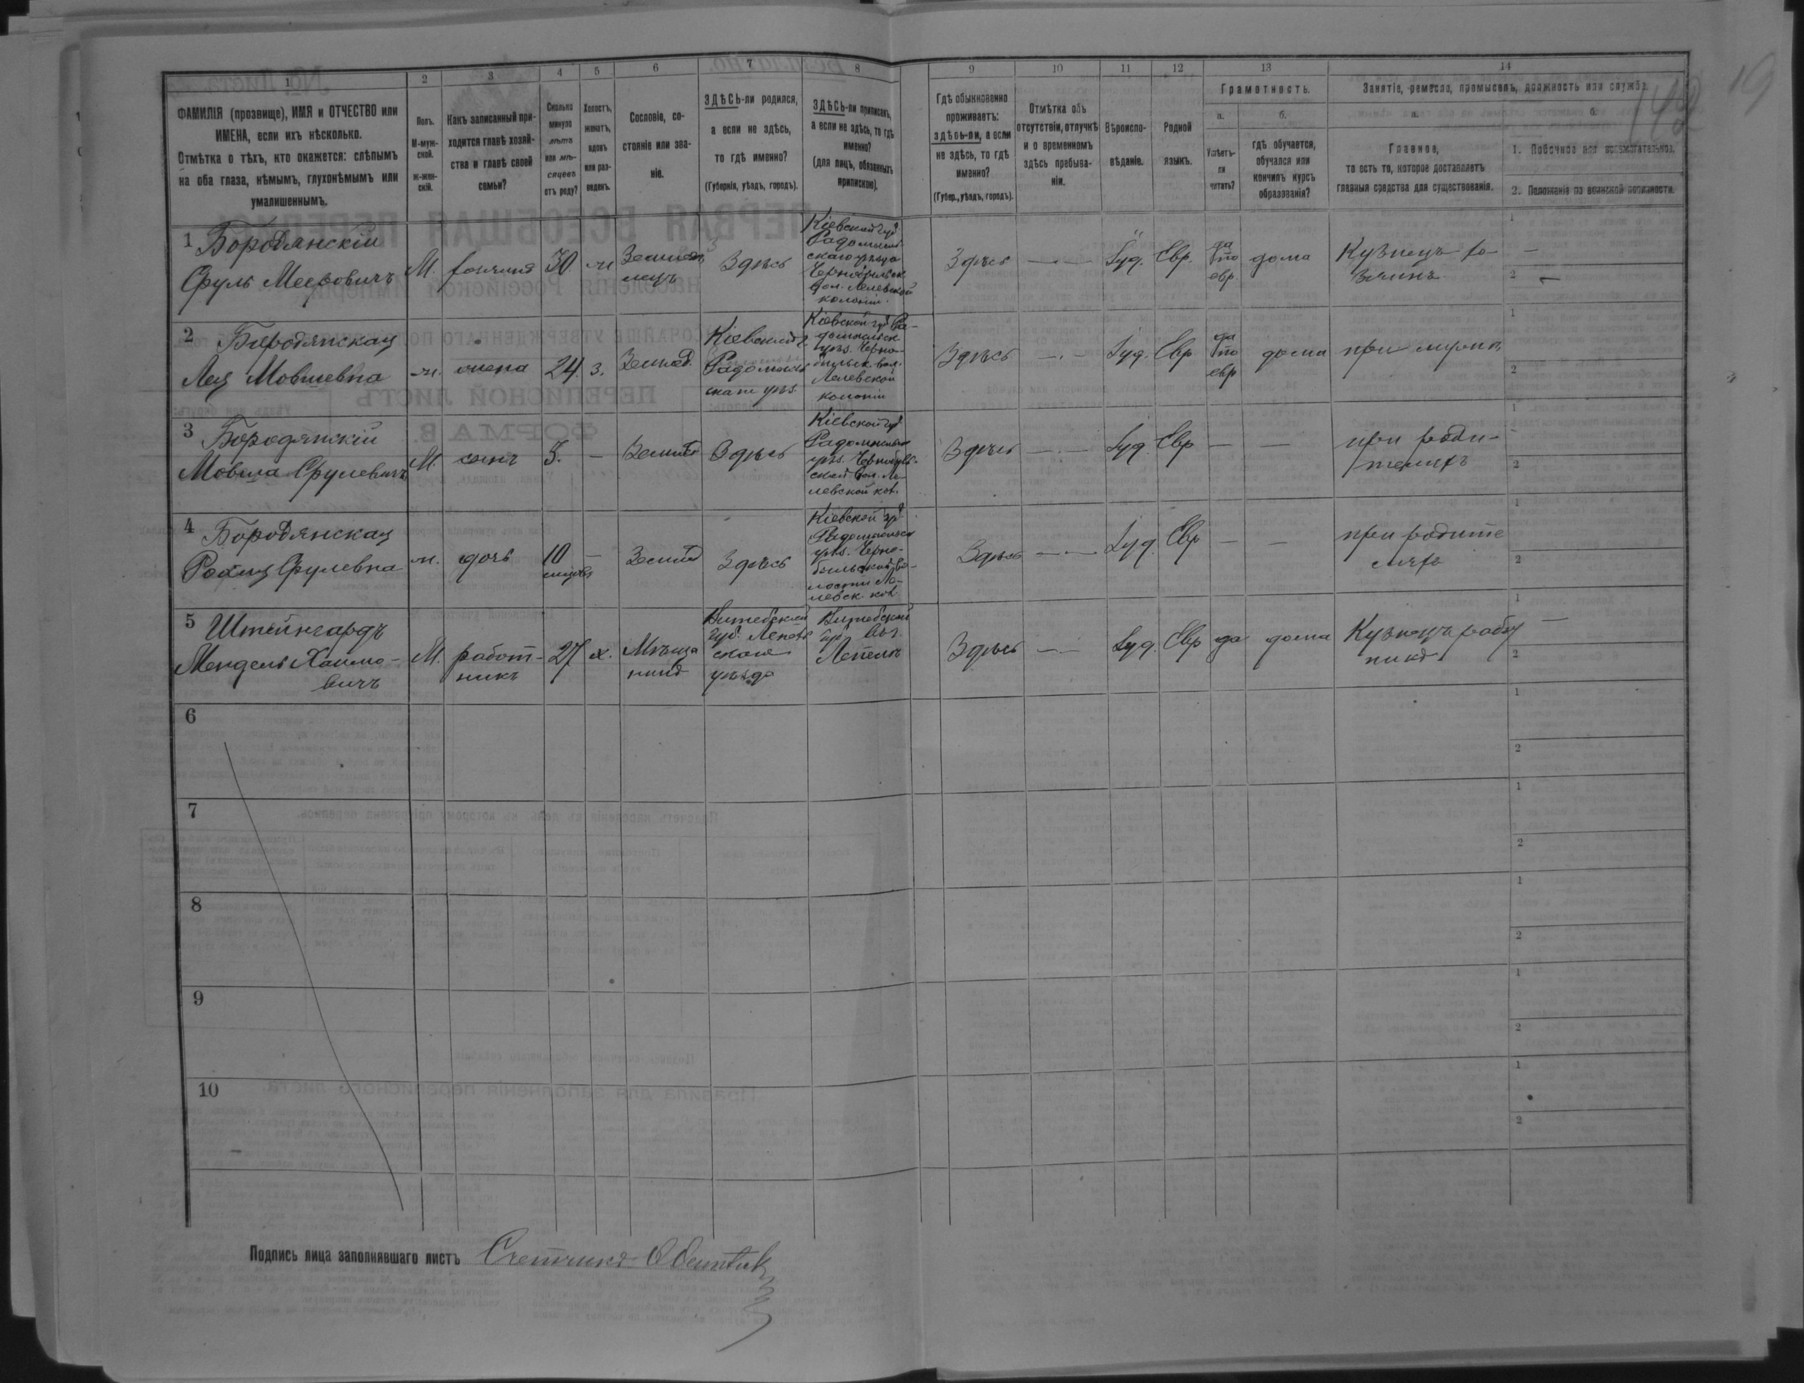 142 19
1 2 3 4 5 6 7 8 9 10 11 12 13 14
ФАМИЛІЯ (прозвище), ИМЯ и ОТЧЕСТВО или
ИМЕНА, если ихъ нѣсколько.
Отмѣтка о тѣхъ, кто окажется: слѣпымъ
на оба глаза, нѣмымъ, глухонѣмымъ или
умалишеннымъ.
Полъ.
М-муж-
ской.
ж-жен-
скій.
Какъ записанный при-
ходится главѣ хозяй-
ства и главѣ своей
семьи?
Сколько
минуло
лѣтъ
или мѣ-
сяцевъ
отъ роду?
Холостъ,
женатъ,
вдовъ
или раз-
веденъ.
Сословіе, со-
стояніе или зва-
ніе.
ЗДѢСЬ-ли родился,
а если не здѣсь,
то гдѣ именно?
(Губернія, уѣздъ, городъ).
ЗДѢСЬ-ли приписанъ,
а если не здѣсь, то гдѣ
именно?
(для лицъ, обязанныхъ
припискою).
Гдѣ обыкновенно
проживаетъ:
здѣсь-ли, а если
не здѣсь, то гдѣ
именно?
(Губер., уѣздъ, городъ).
Отмѣтка объ
отсутствіи, отлучкѣ
и о временномъ
здѣсь пребыва-
ніи.
Вѣроиспо-
вѣданіе.
Родной
языкъ.
Грамотность.
а.
Умѣетъ-
ли
читать?
б.
гдѣ обучается,
обучался или
кончилъ курсъ
образованія?
Занятіе, ремесло, промыселъ, должность или служба.
а.
Главное,
то есть то, которое доставляетъ
главныя средства для существованія.
б.
1. Побочное или вспомогательное.
2. Положеніе по воинской повинности.
1 Бородянскій
Сруль Мееровичъ
М.
30
ж
Земледѣ
лецъ
Здѣсь
Кіевской губ
Радомысль
скаго уѣзда
Чернобыльск
вол. Лелевской
колоніи.
Здѣсь
—
Іуд.
Евр.
да
по
евр
дома
Кузнецъ хо
зяинъ
1 —
2 —
2 Бородянская
Лея Мовшевна
ж.
жена
24
з.
Землед.
Кіевской г.
Радомысль
скаго уѣз
Кіевской губ Ра-
домысльск
уѣз. Черно-
быльск. вол.
Лелевской
колоніи
Здѣсь
—
Іуд.
Евр
да
по
евр
дома
при мужѣ
1
2
3 Бородянскій
Мовша Срулевичъ
М.
сынъ
3.
—
Землед
Здѣсь
Кіевской губ
Радомысльск
уѣз. Чернобыль-
ской вол. Ле-
левской кол.
Здѣсь
—
Іуд
Евр
—
—
при роди-
теляхъ
1
2
4 Бородянская
Срулевна
ж.
дочь
10
мѣсяцевъ
—
Землед
Здѣсь
Кіевской губ
Радомысльск
уѣз. Черно-
быльской во-
лости Ле-
левск. кол
Здѣсь
—
Іуд.
Евр
—
—
при родите
ляхъ
1
2
5 Штейнгардъ
Мендель Хаимо-
вичъ
М.
работ-
никъ
27
х.
Мѣща
нинъ
Витебской
губ. Лепель
скаго
уѣзда
Витебской
губ.
Лепель
Здѣсь
—
Іуд.
Евр
да
дома
Кузнецъ работ
никъ
1 —
2
6
1
2
7
1
2
8
1
2
9
1
2
10
1
2
Подпись лица заполнявшаго листъ Счетчикъ